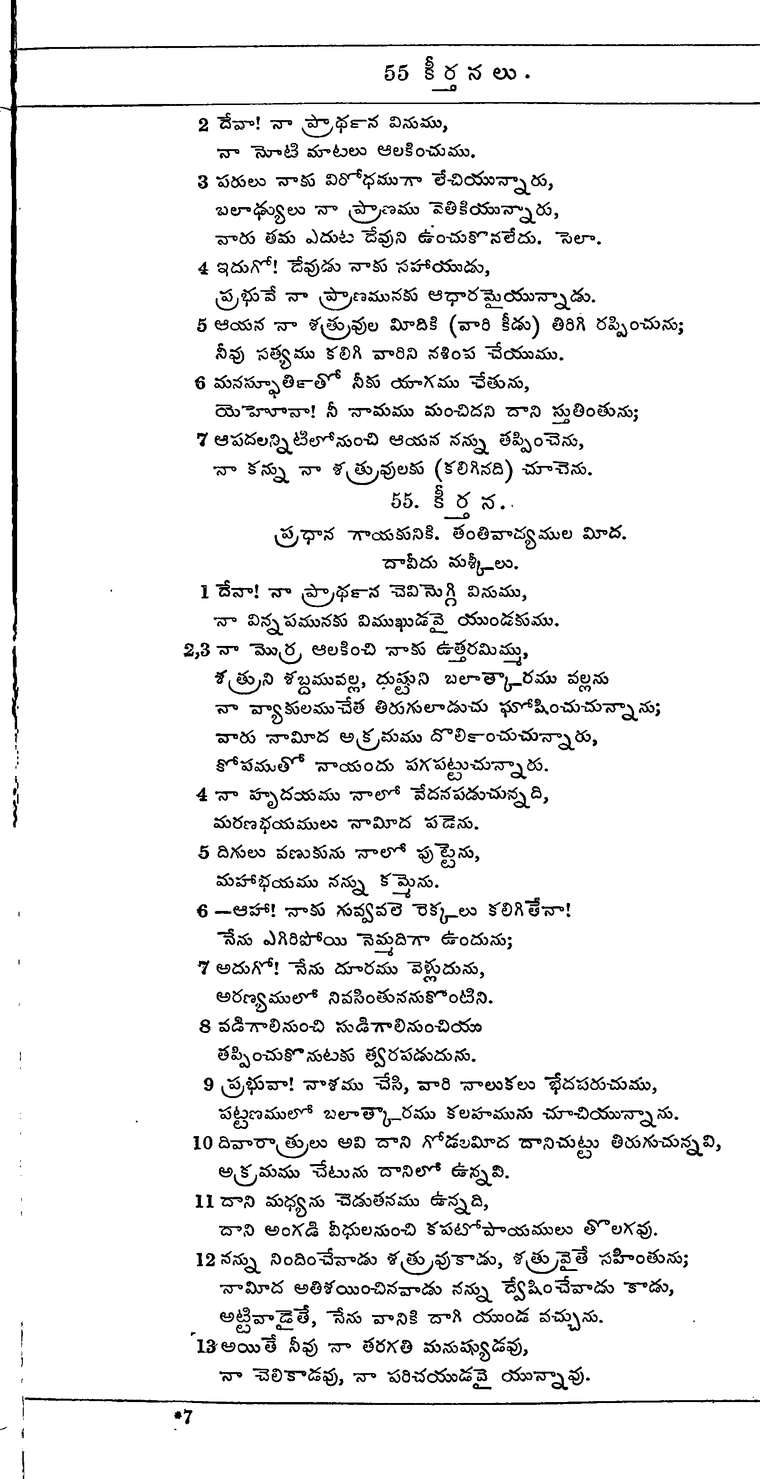 55 కీర్తనలు.
2 దేవా! నా ప్రార్థన వినుము,
నా నోటి మాటలు ఆలకించుము.
3 పరులు నాకు విరోధముగా లేచియున్నారు,
బలాఢ్యులు నా ప్రాణము వెతికియున్నారు,
వారు తమ ఎదుట దేవుని ఉంచుకొనలేదు. సెలా.
4 ఇదుగో! దేవుడు నాకు సహాయుడు,
ప్రభువే నా ప్రాణమునకు ఆధారమైయున్నాడు.
5 ఆయన నా శత్రువుల మీదికి (వారి కీడు) తిరిగి రప్పించును;
నీవు సత్యము కలిగి వారిని నశింప చేయుము.
6 మనస్ఫూర్తితో నీకు యాగము చేతును,
యెహోవా! నీ నామము మంచిదని దాని స్తుతింతును;
7 ఆపదలన్నిటిలోనుంచి ఆయన నన్ను తప్పించెను,
నా కన్ను నా శత్రువులకు (కలిగినది) చూచెను.
55. కీర్తన.
ప్రధాన గాయకునికి. తంతివాద్యముల మీద.
దావీదు మశ్కీలు.
1 దేవా! నా ప్రార్థన చెవియొగ్గి వినుము,
నా విన్నపమునకు విముఖుడవై యుండకుము.
2,3 నా మొర్ర ఆలకించి నాకు ఉత్తరమిమ్ము,
శత్రుని శబ్దమువల్ల, దుష్టుని బలాత్కారము వల్లను
నా వ్యాకులముచేత తిరుగులాడుచు ఘోషించుచున్నాను;
వారు నామీద అక్రమము దొర్లించుచున్నారు,
కోపముతో నాయందు పగపట్టుచున్నారు.
4 నా హృదయము నాలో వేదనపడుచున్నది,
మరణభయములు నామీద పడెను.
5 దిగులు వణుకును నాలో పుట్టెను,
మహాభయము నన్ను కమ్మెను.
6 —ఆహా! నాకు గువ్వవలె రెక్కలు కలిగితేనా!
నేను ఎగిరిపోయి నెమ్మదిగా ఉందును;
7 అదుగో! నేను దూరము వెళ్లుదును,
అరణ్యములో నివసింతుననుకొంటిని.
8 వడిగాలినుంచి సుడిగాలినుంచియు
తప్పించుకొనుటకు త్వరపడుదును.
9 ప్రభువా! నాశము చేసి, వారి నాలుకలు భేదపరుచుము,
పట్టణములో బలాత్కారము కలహమును చూచియున్నాను.
10 దివారాత్రులు అవి దాని గోడలమీద దానిచుట్టు తిరుగుచున్నవి,
అక్రమము చేటును దానిలో ఉన్నవి.
11 దాని మధ్యను చెడుతనము ఉన్నది,
దాని అంగడి వీధులనుంచి కపటోపాయములు తొలగవు.
12 నన్ను నిందించేవాడు శత్రువుకాడు, శత్రువైతే సహింతును;
నామీద అతిశయించినవాడు నన్ను ద్వేషించేవాడు కాడు,
అట్టివాడైతే, నేను వానికి దాగి యుండ వచ్చును.
13 అయితే నీవు నా తరగతి మనుష్యుడవు,
నా చెలికాడవు, నా పరిచయుడవై యున్నావు.
*7